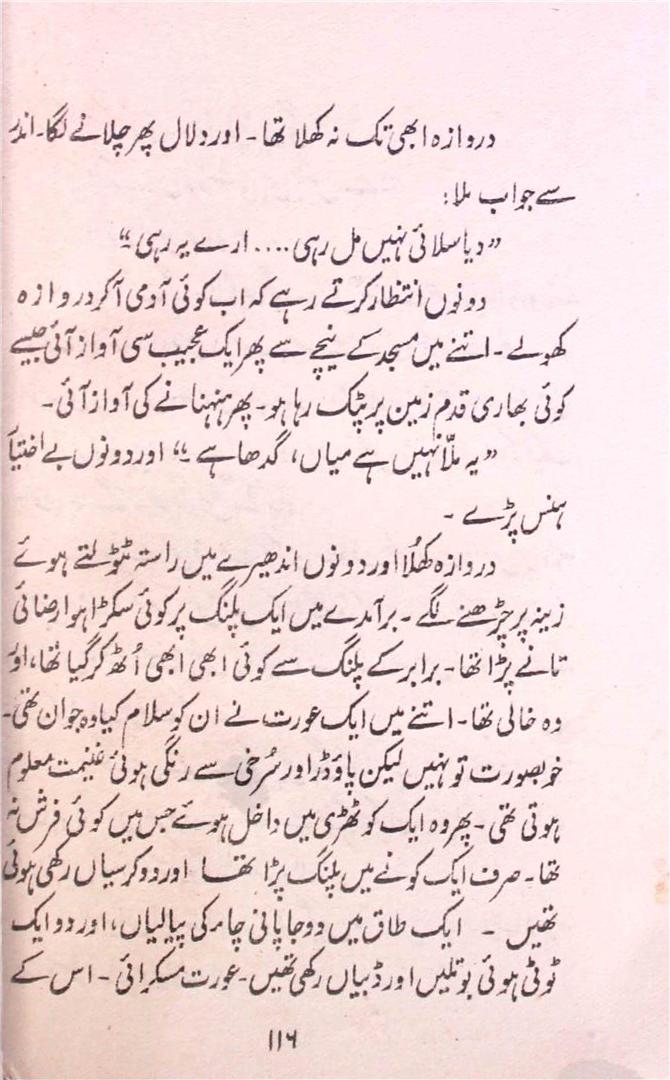 دروازہ ابھی تک نہ کھلا تھا۔ اور دلال پھر چلانے لگا۔ اندر
سے جواب ملا:
”دیا سلائی نہیں مل رہی .... ارے یہ رہی۔“
دونوں انتظار کرتے رہے کہ اب کوئی آدمی آکر دروازہ
کھولے۔ اتنے میں مسجد کے نیچے سے پھر ایک عجیب سی آواز آئی جیسے
کوئی بھاری قدم زمین پر پٹک رہا ہو۔ پھر ہنہنانے کی آواز آئی۔
”یہ ملّا نہیں ہے میاں، گدھا ہے۔“ اور دونوں بے اختیار
ہنس پڑے۔
دروازہ کھُلا اور دونوں اندھیرے میں راستہ ٹٹولتے ہوئے
زینہ پر چڑھنے لگے۔ برآمدے میں ایک پلنگ پر کوئی سکڑا ہوا رضائی
تانے پڑا تھا۔ برابر کے پلنگ سے کوئی ابھی ابھی اُٹھ کر گیا تھا، اور
وہ خالی تھا۔ اتنے میں ایک عورت نے ان کو سلام کیا وہ جوان تھی۔
خوبصورت تو نہیں لیکن پاؤڈر اور سُرخی سے رنگی ہوئی غنیمت معلوم
ہوتی تھی۔ پھر وہ ایک کوٹھڑی میں داخل ہوئے جس میں کوئی فرش نہ
تھا۔ صرف ایک کونے میں پلنگ پڑا تھا اور دو کرسیاں رکھی ہوئی
تھیں ۔ ایک طاق میں دو جاپانی چاء کی پیالیاں، اور دو ایک
ٹوٹی ہوئی بوتلیں اور ڈبیاں رکھی تھیں۔ عورت مسکرائی۔ اس کے
۱۱۶